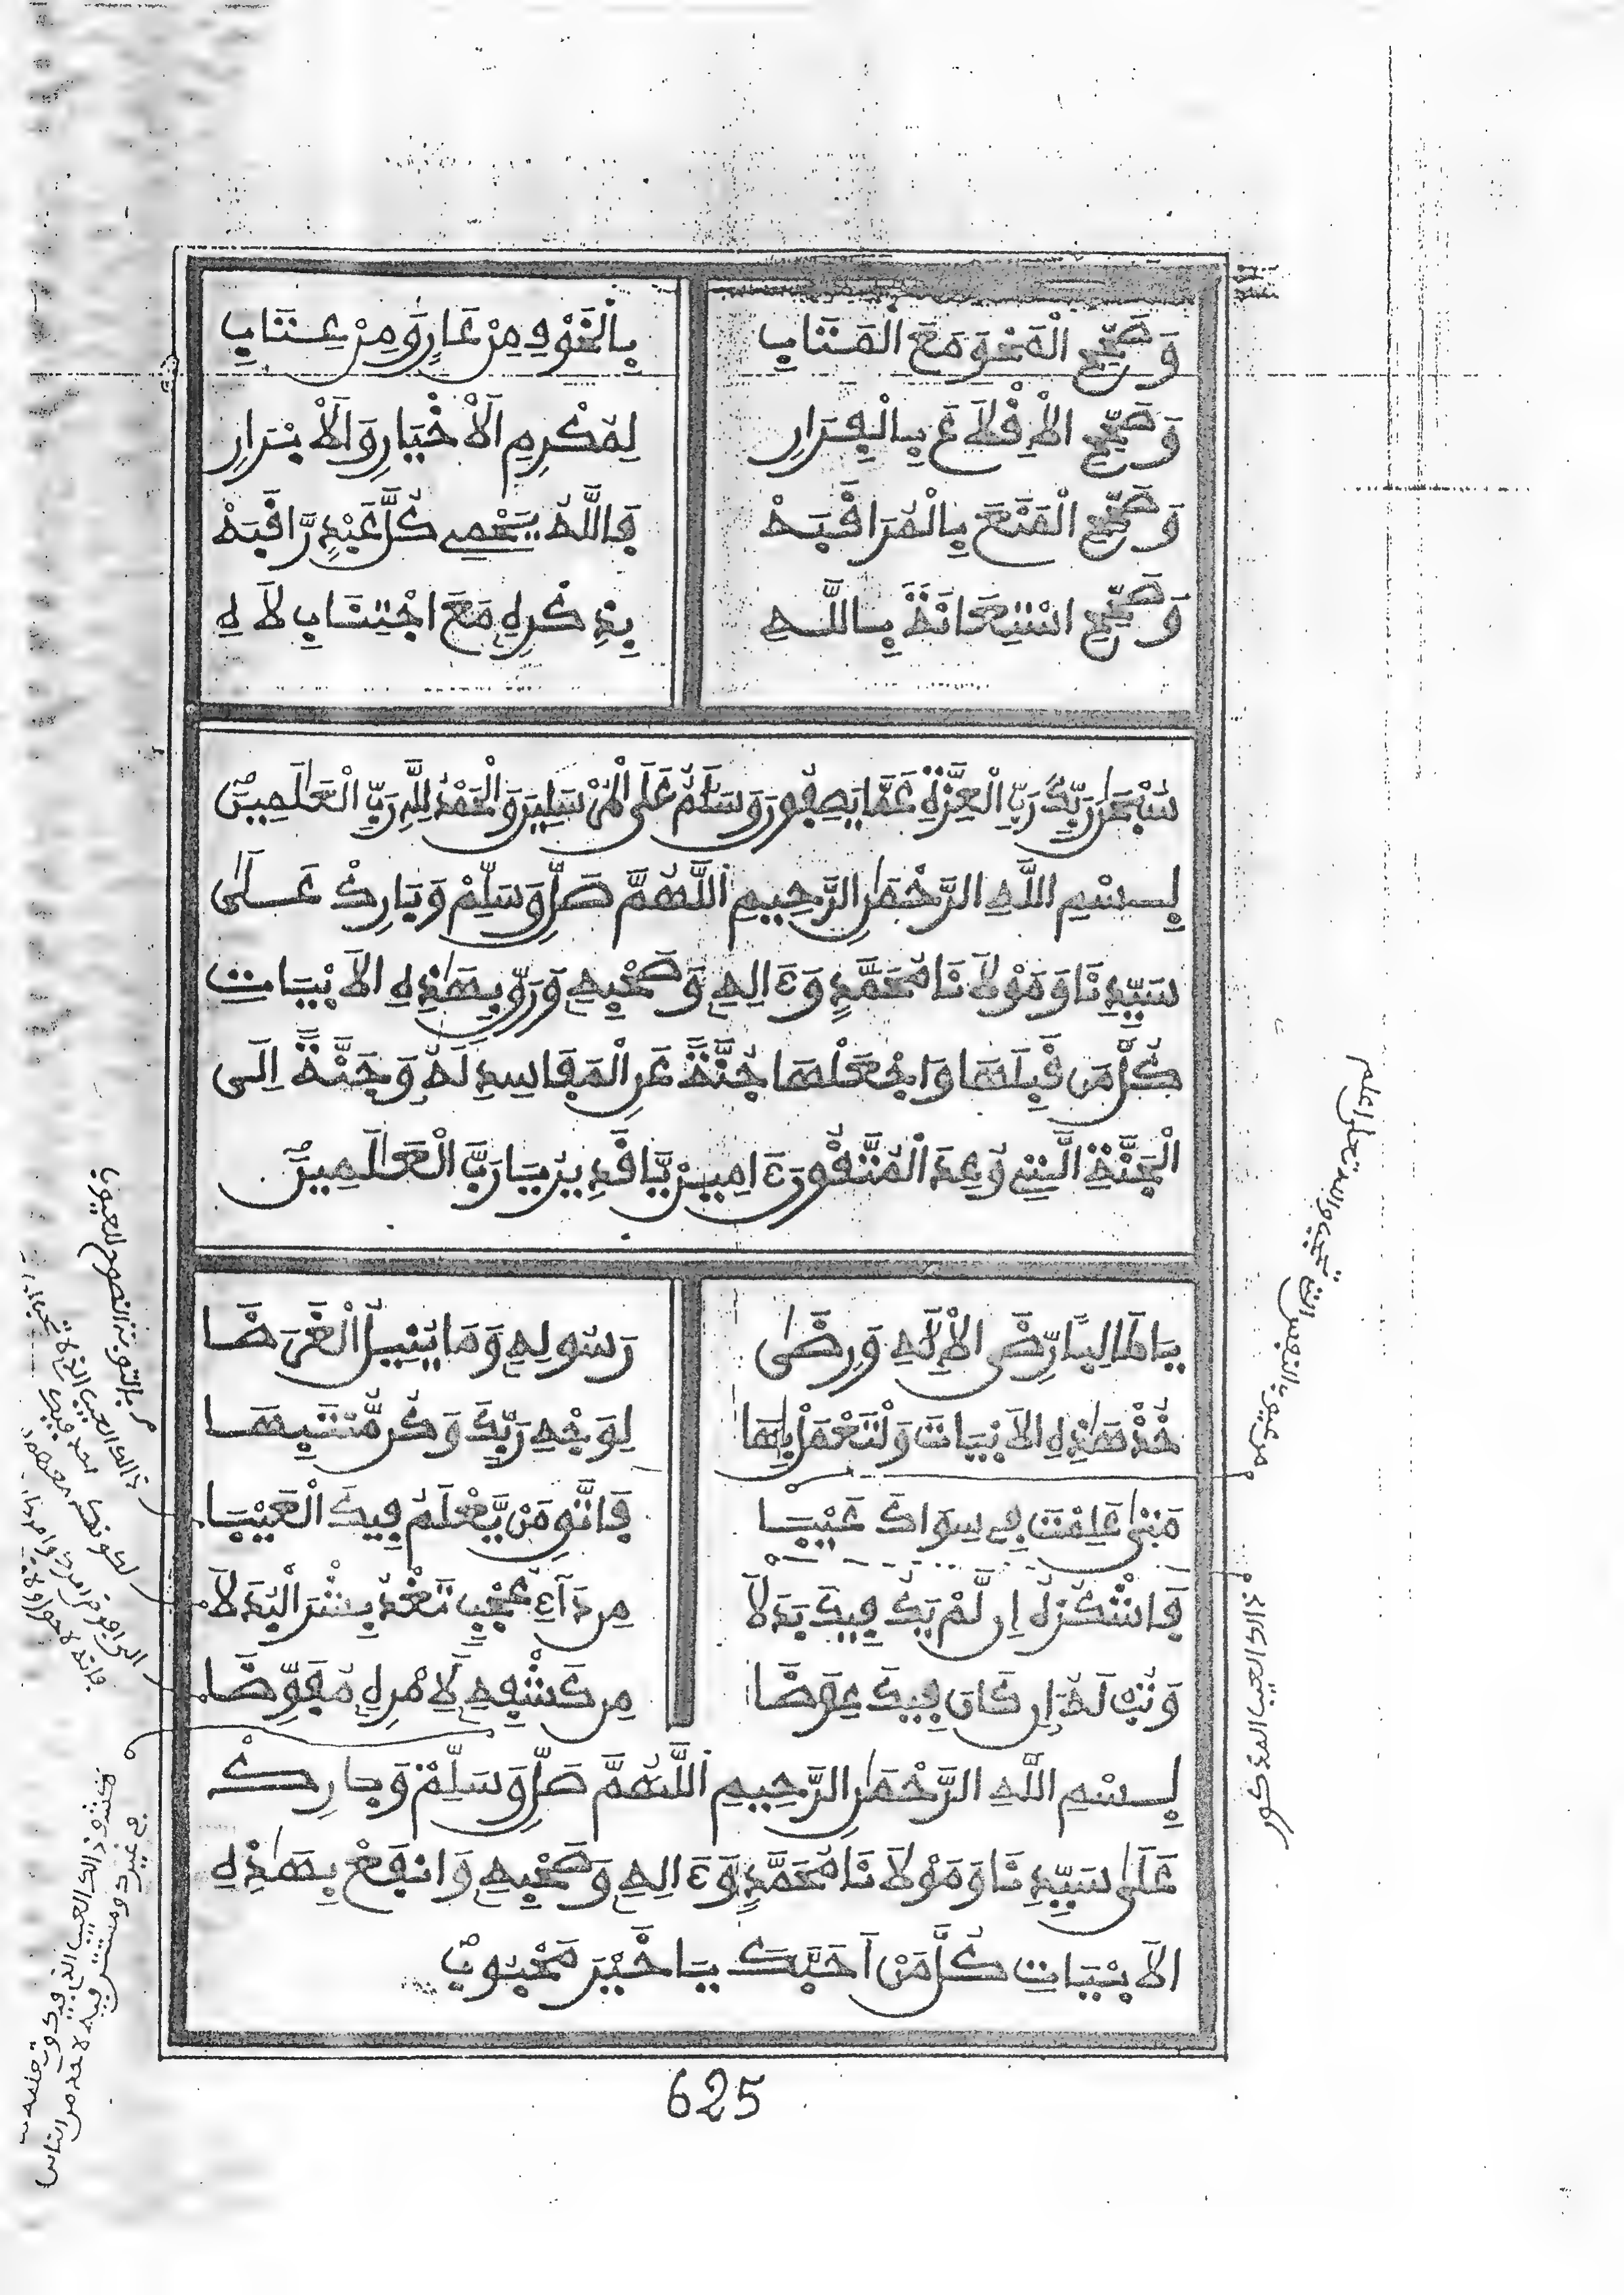 وَصَحِّحِ الْمَحْوَ مَعَ الْمَتَابِ بِالْخَوْفِ مِنْ عَارٍ وَّمِنْ عِتَابِ
وَصَحِّحِ الْإِقْلَاعَ بِالْفِرَارِ لِمُكْرِمِ الْأَخْيَارِ وَالْأَبْرَارِ
وَصَحِّحِ الْمَنْعَ بِالْمُرَاقَبَهْ فَاللَّهُ يَحْمِي كُلَّ عَبْدٍ رَّاقَبَهْ
وَصَحِّحِ اسْتِعَانَةً بِاللَّهِ بِذِكْرِهِ مَعَ اجْتِنَابِ لَاهِ
سُبْحَٰنَ رَبِّكَ رَبِّ الْعِزَّةِ عَمَّا يَصِفُونَ وَسَلَٰمٌ عَلَى الْمُرْسَلِينَ وَالْحَمْدُ لِلَّهِ رَبِّ الْعَٰلَمِينَ
بِسْمِ اللَّهِ الرَّحْمَٰنِ الرَّحِيمِ اللَّهُمَّ صَلِّ وَسَلِّمْ وَبَارِكْ عَلَىٰ
سَيِّدِنَا وَمَوْلَانَا مُحَمَّدٍ وَءَالِهِ وَصَحْبِهِ وَرَوِّ بِهَٰذِهِ الْأَبْيَاتِ
كُلَّ مَن قَبِلَهَا وَاجْعَلْهَا جُنَّةً عَنِ الْمَفَاسِدِ لَهُ وَجَنَّةً إِلَى
الْجَنَّةِ الَّتِي وُعِدَ الْمُتَّقُونَ ءَامِينْ يَّا قَدِيرُ يَا رَبَّ الْعَٰلَمِينَ
يَا طَالِبًا رِّضَى الْإِلَٰهِ وَرِضَىٰ رَسُولِهِ وَمَا يُنِيلُ الْغَرَضَا
خُذْ هَٰذِهِ الْأَبْيَاتَ وَلْتَعْمَلْ بِهَا لِوَجْهِ رَبِّكَ وَكُن مُّنْتَبِهَا
مَتَىٰ عَلِمْتَ فِي سِوَاكَ عَيْبَا فَاتَّقِ مَنْ يَّعْلَمُ فِيكَ الْعَيْبَا
فَاشْكُرْ لَهُ إِن لَّمْ يَكُ فِيكَ بَدَلَا مِن دَاءِ عُجْبٍ تَغْدُ بِشْرَ الْبُدَلَا
وَتُبْ لَهُ إِن كَانَ فِيكَ عِوَضَا مِن كَشْفِهِ لِأَمْرِهِ مُفَوِّضَا
بِسْمِ اللَّهِ الرَّحْمَٰنِ الرَّحِيمِ اللَّهُمَّ صَلِّ وَسَلِّمْ وَبَارِكْ
عَلَىٰ سَيِّدِنَا وَمَوْلَانَا مُحَمَّدٍ وَءَالِهِ وَصَحْبِهِ وَانفَعْ بِهَٰذِهِ
الْأَبْيَاتِ كُلَّ مَنْ أَحَبَّكَ يَا خَيْرَ مَحْبُوبٍ
من عيوب النفس التي تجيء والله تعلى اعلم
ذالك العيب المذكور
من التوبة النصوح للعيوب
625